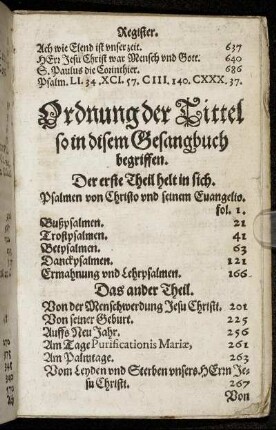 Register.
Ach wie Elend ist vnser zeit. 637
HErr Jesu Christ war Mensch vnd Gott. 640
S. Paulus die Corinthier. 686
Psalm. LI. 34. XCI. 57. CIII. 140. CXXX. 37.
Ordnung der Tittel
so in disem Gesangbuch
begriffen.
Der erste Theil helt in sich.
Psalmen von Christo vnd seinem Euangelio.
fol. 1.
Bußpsalmen. 21
Trostpsalmen. 41
Betpsalmen. 63
Danckpsalmen. 121
Ermahnung vnd Lehrpsalmen. 166
Das ander Theil.
Von der Menschwerdung Jesu Christi. 201
Von seiner Geburt. 225
Auffs New Jahr. 256
Am Tage Purificationis Mariæ, 261
Am Palmtage. 263
Vom Leyden vnd Sterben vnsers HErrn Je-
su Christi. 267
Von